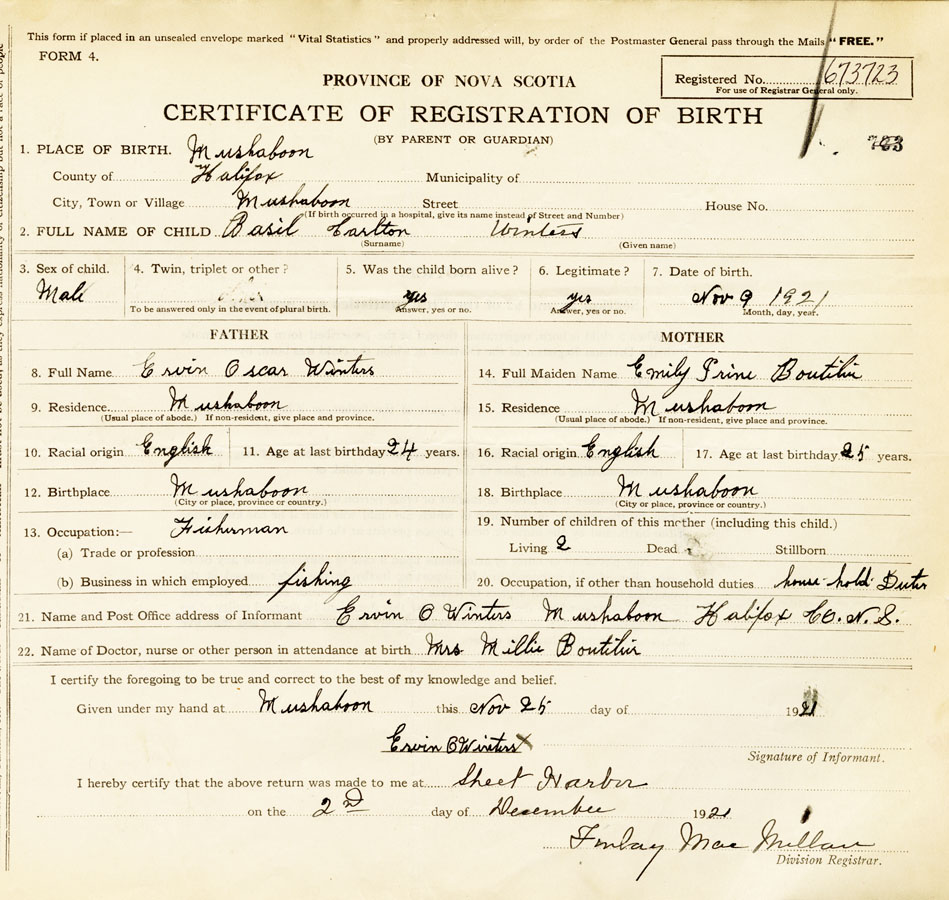 This form if placed in an unsealed envelope marked "Vital Statistics" and properly addressed will, by order of the Postmaster General pass through the Mails "FREE."
FORM 4.
Registered No. 673723
For use of Registrar General only.
PROVINCE OF NOVA SCOTIA
CERTIFICATE OF REGISTRATION OF BIRTH
(BY PARENT OR GUARDIAN)
1. PLACE OF BIRTH. Mushaboon
County of Halifax Municipality of
City, Town or Village Mushaboon Street House No.
(If birth occurred in a hospital, give its name instead of Street and Number)
2. FULL NAME OF CHILD Basil Carlton Winters
(Surname) (Given name)
3. Sex of child. 4. Twin, triplet or other? 5. Was the child born alive? 6. Legitimate? 7. Date of birth.
Male yes yes Nov 9 1921
To be answered only in the event of plural birth. Answer, yes or no. Answer, yes or no. Month, day, year.
FATHER MOTHER
8. Full Name Ervin Oscar Winters 14. Full Maiden Name Emily Prine Boutilir
9. Residence Mushaboon 15. Residence Mushaboon
(Usual place of abode.) If non-resident, give place and province. (Usual place of abode.) If non-resident, give place and province.
10. Racial origin English 11. Age at last birthday 24 years. 16. Racial origin English 17. Age at last birthday 25 years.
12. Birthplace Mushaboon 18. Birthplace Mushaboon
(City or place, province or country.) (City or place, province or country.)
13. Occupation:— Fisherman 19. Number of children of this mother (including this child.)
(a) Trade or profession Living 2 Dead Stillborn
(b) Business in which employed fishing 20. Occupation, if other than household duties house-hold Duties
21. Name and Post Office address of Informant Ervin O Winters Mushaboon Halifax Co. N.S.
22. Name of Doctor, nurse or other person in attendance at birth Mrs Millie Boutilir
I certify the foregoing to be true and correct to the best of my knowledge and belief.
Given under my hand at Mushaboon this Nov 25 day of 1921
Ervin O Winters X
Signature of Informant.
I hereby certify that the above return was made to me at Sheet Harbor
on the 2nd day of December 1921
Finlay Mac Millan
Division Registrar.